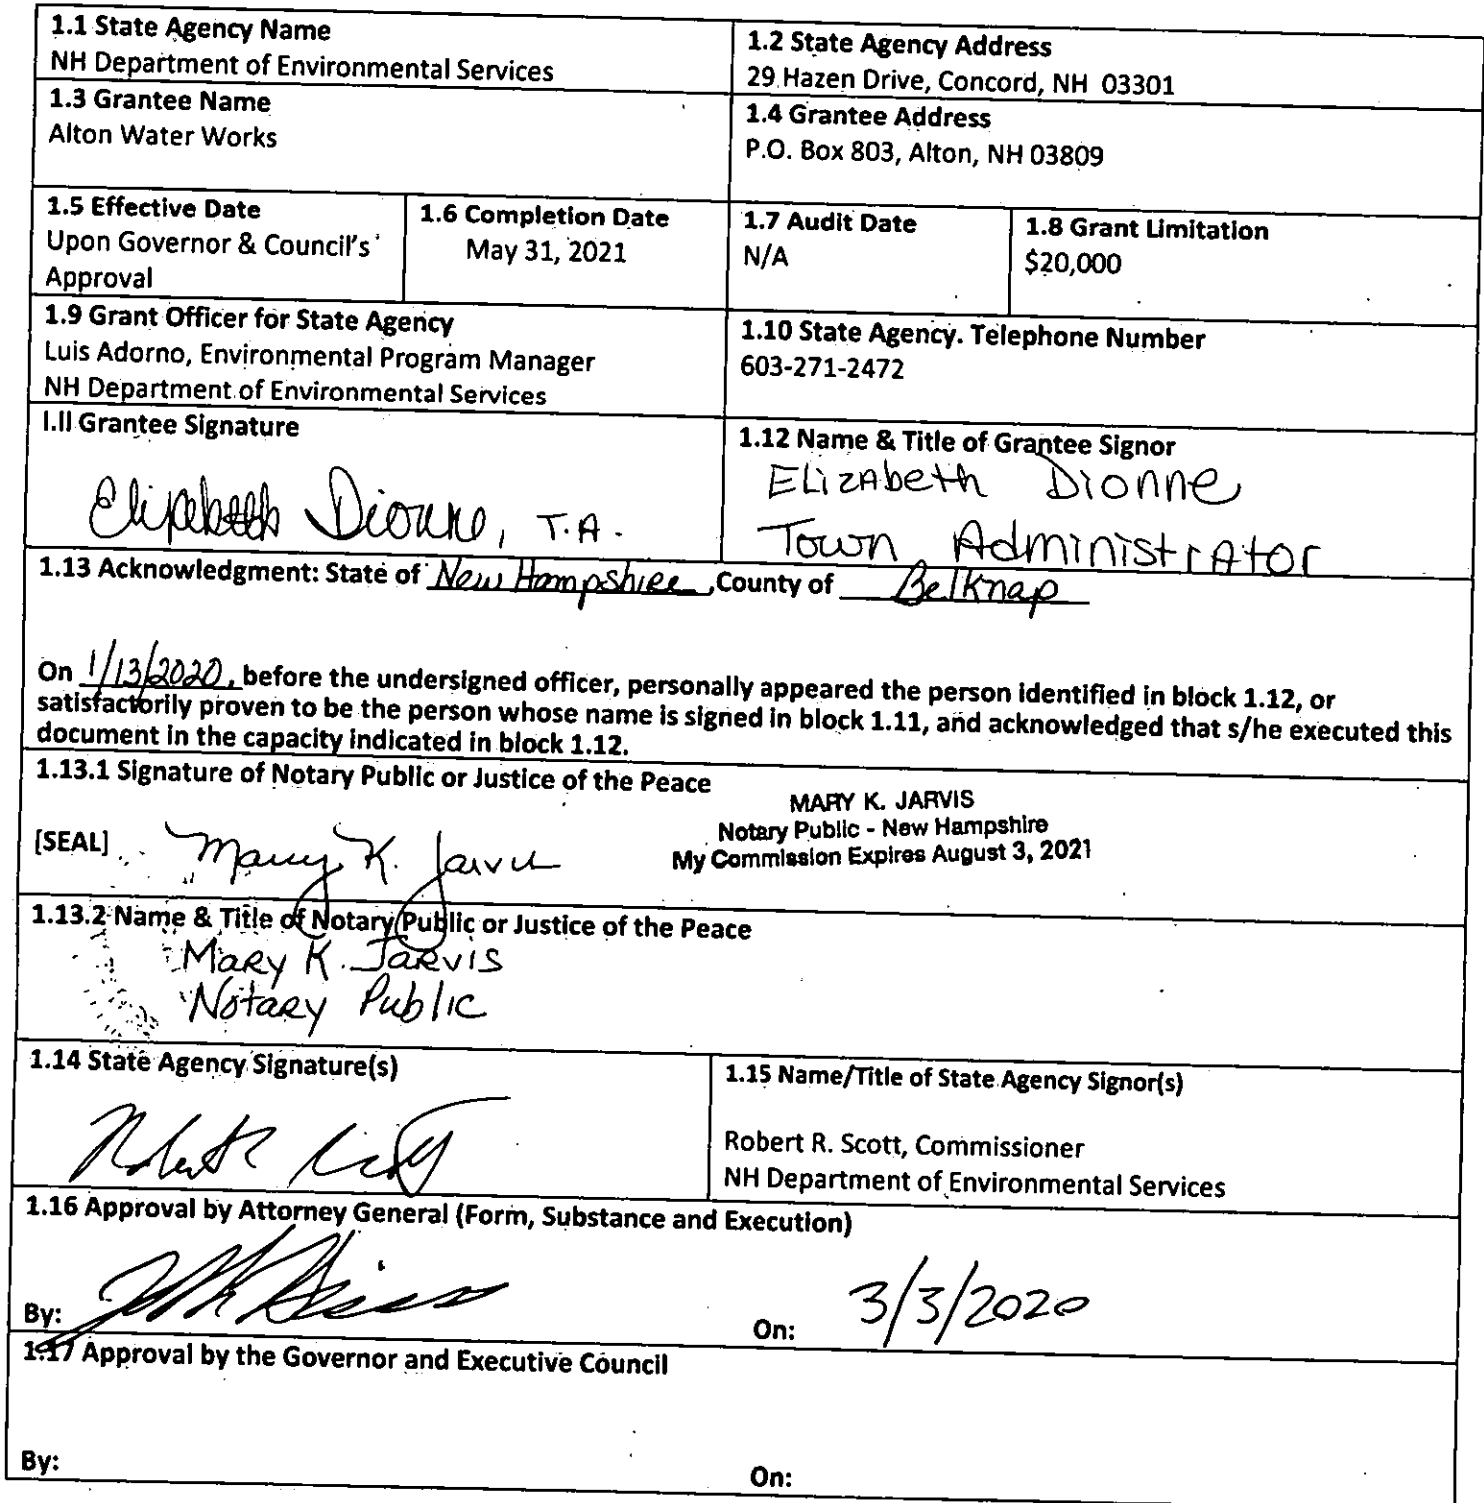 1.1 State Agency Name
NH Department of Environmental Services
1.2 State Agency Address
29 Hazen Drive, Concord, NH 03301
1.3 Grantee Name
Alton Water Works
1.4 Grantee Address
P.O. Box 803, Alton, NH 03809
1.5 Effective Date
Upon Governor & Council's
Approval
1.6 Completion Date
May 31, 2021
1.7 Audit Date
N/A
1.8 Grant Limitation
$20,000
1.9 Grant Officer for State Agency
Luis Adorno, Environmental Program Manager
NH Department of Environmental Services
1.10 State Agency. Telephone Number
603-271-2472
I.II Grantee Signature
Elizabeth Dionne, T.A.
1.12 Name & Title of Grantee Signor
Elizabeth Dionne
Town Administrator
1.13 Acknowledgment: State of New Hampshire, County of Belknap
On 1/13/2020, before the undersigned officer, personally appeared the person identified in block 1.12, or
satisfactorily proven to be the person whose name is signed in block 1.11, and acknowledged that s/he executed this
document in the capacity indicated in block 1.12.
1.13.1 Signature of Notary Public or Justice of the Peace
MARY K. JARVIS
Notary Public - New Hampshire
My Commission Expires August 3, 2021
[SEAL] Mary K. Jarvis
1.13.2 Name & Title of Notary Public or Justice of the Peace
Mary K. Jarvis
Notary Public
1.14 State Agency Signature(s)
1.15 Name/Title of State Agency Signor(s)
Robert R. Scott, Commissioner
NH Department of Environmental Services
1.16 Approval by Attorney General (Form, Substance and Execution)
By:
On: 3/3/2020
1.17 Approval by the Governor and Executive Council
By:
On: